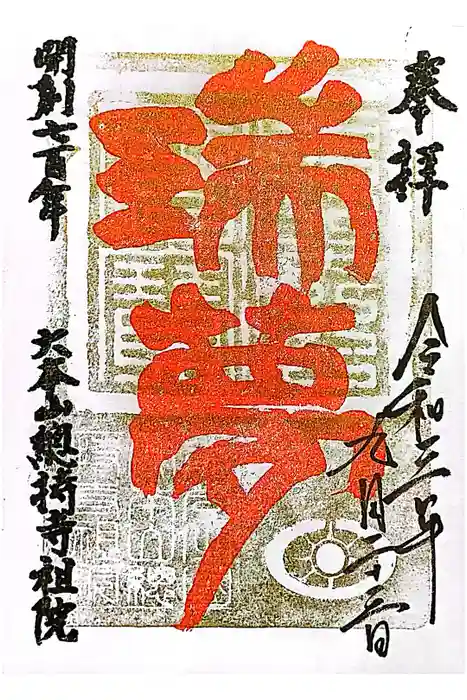 奉拝
令和三年
九月二十三日
瑞夢
開創七百年
大本山總持寺祖院